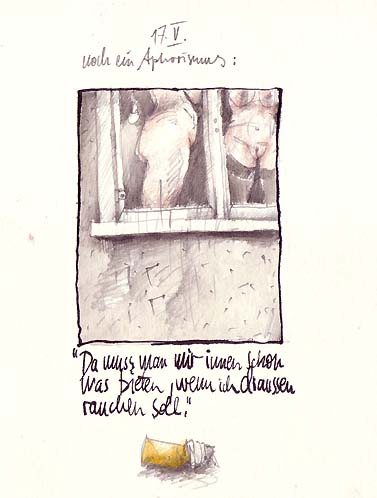 17. V.
noch ein Aphorismus:
"Da muss man mir innen schon
was bieten, wenn ich draussen
rauchen soll."